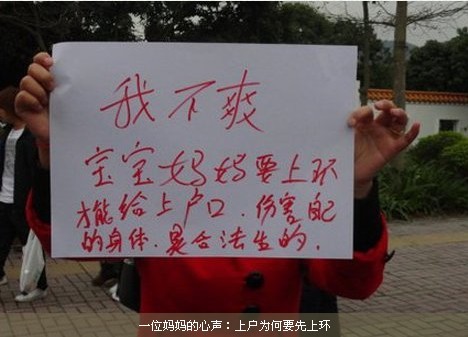 我不爽
宝宝妈妈要上环
才能给上户口.伤害自己
的身体.是合法生的.
一位妈妈的心声：上户为何要先上环